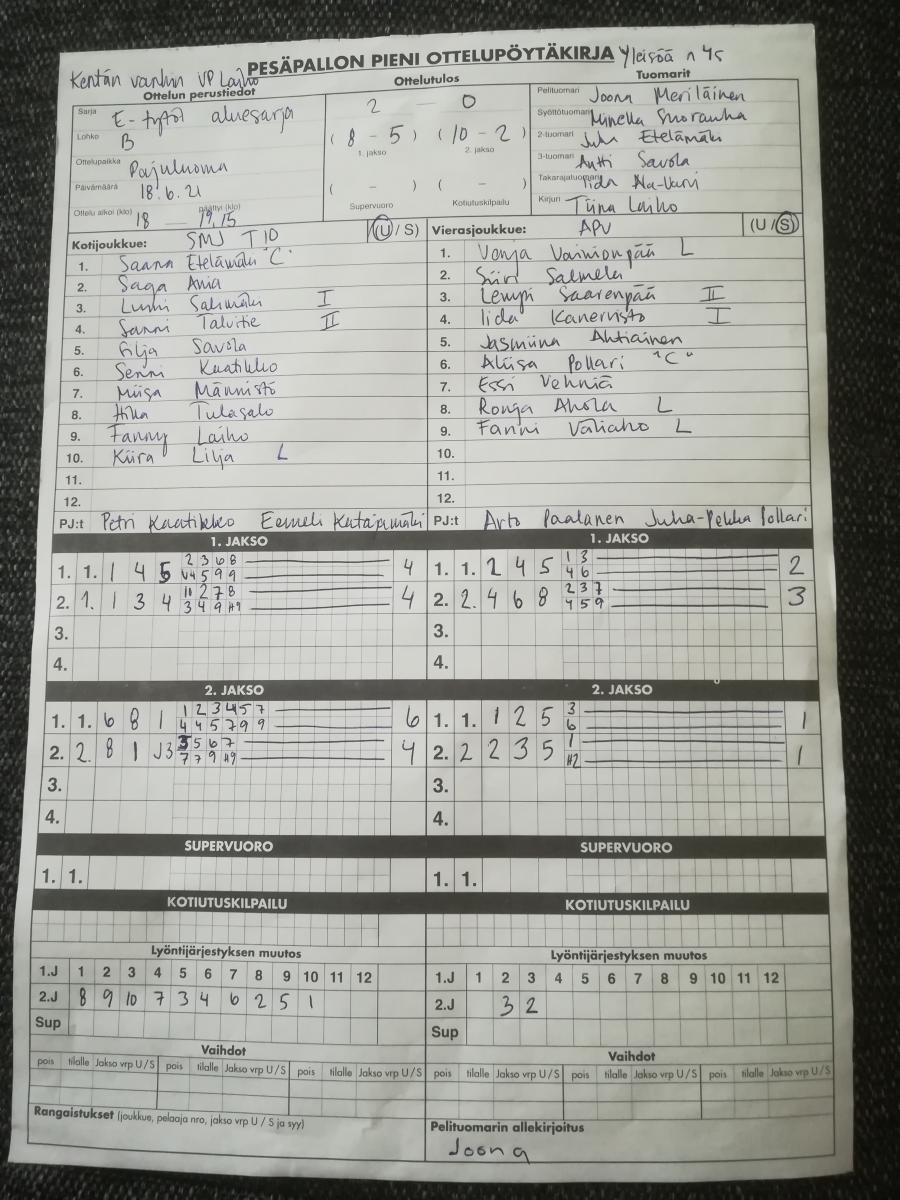 PESÄPALLON PIENI OTTELUPÖYTÄKIRJA Yleisöä n 45
Kentän vanhin VP Laiho
Ottelun perustiedot Ottelutulos Tuomarit
Sarja E-tytöt aluesarja
Lohko B
Ottelupaikka Pajuluoma
Päivämäärä 18.6.21
Ottelu alkoi (klo) 18 päättyi (klo) 19.15
2 - 0
( 8 - 5 ) ( 10 - 2 )
1. jakso 2. jakso
( - ) ( - )
Supervuoro Kotiutuskilpailu
Pelituomari Joona Meriläinen
Syöttötuomari Minella
2-tuomari Juha Etelämäki
3-tuomari Antti Savola
Takarajatuomari Iida
Kirjuri Tiina Laiho
Kotijoukkue: SMJ T10 (U / S)
1. Saana Etelämäki "C"
2. Saga
3. Lumi Salimäki I
4. Sanni Talvitie II
5. Silja Savola
6. Senni Kaatikko
7. Miisa Männistö
8. Hilla Tulasalo
9. Fanny Laiho
10. Kiira Lilja L
11.
12.
PJ:t Petri Kaatikko Eemeli Katajamäki
Vierasjoukkue: APV (U / S)
1. Venja Vainionpää L
2. Siiri Salmela
3. Lempi Saarenpää II
4. Iida Kanervisto I
5. Jasmiina Ahtiainen
6. Aliisa Pollari "C"
7. Essi Vehniä
8. Ronja Ahola L
9. Fanni Väliaho L
10.
11.
12.
PJ:t Arto Paalanen Juha-Pekka Pollari
1. JAKSO 1. JAKSO
2 3 6 8
1. 1. 1 4 5 V4 5 9 9 4
10 2 7 8
2. 1. 1 3 4 3 4 9 H9 4
3.
4.
1 3
1. 1. 2 4 5 4 6 2
2 3 7
2. 2. 4 6 8 4 5 9 3
3.
4.
2. JAKSO 2. JAKSO
1 2 3 4 5 7
1. 1. 6 8 1 4 4 5 7 9 9 6
3 5 6 7
2. 2. 8 1 J3 7 7 9 H9 4
3.
4.
3
1. 1. 1 2 5 6 1
1
2. 2 2 3 5 H2 1
3.
4.
SUPERVUORO SUPERVUORO
1. 1. 1. 1.
KOTIUTUSKILPAILU KOTIUTUSKILPAILU
Lyöntijärjestyksen muutos
1.J 1 2 3 4 5 6 7 8 9 10 11 12
2.J 8 9 10 7 3 4 6 2 5 1
Sup
Lyöntijärjestyksen muutos
1.J 1 2 3 4 5 6 7 8 9 10 11 12
2.J 3 2
Sup
Vaihdot Vaihdot
pois tilalle Jakso vrp U / S pois tilalle Jakso vrp U / S pois tilalle Jakso vrp U / S pois tilalle Jakso vrp U / S pois tilalle Jakso vrp U / S pois tilalle Jakso vrp U / S
Rangaistukset (joukkue, pelaaja nro, jakso vrp U / S ja syy)
Pelituomarin allekirjoitus
Joona